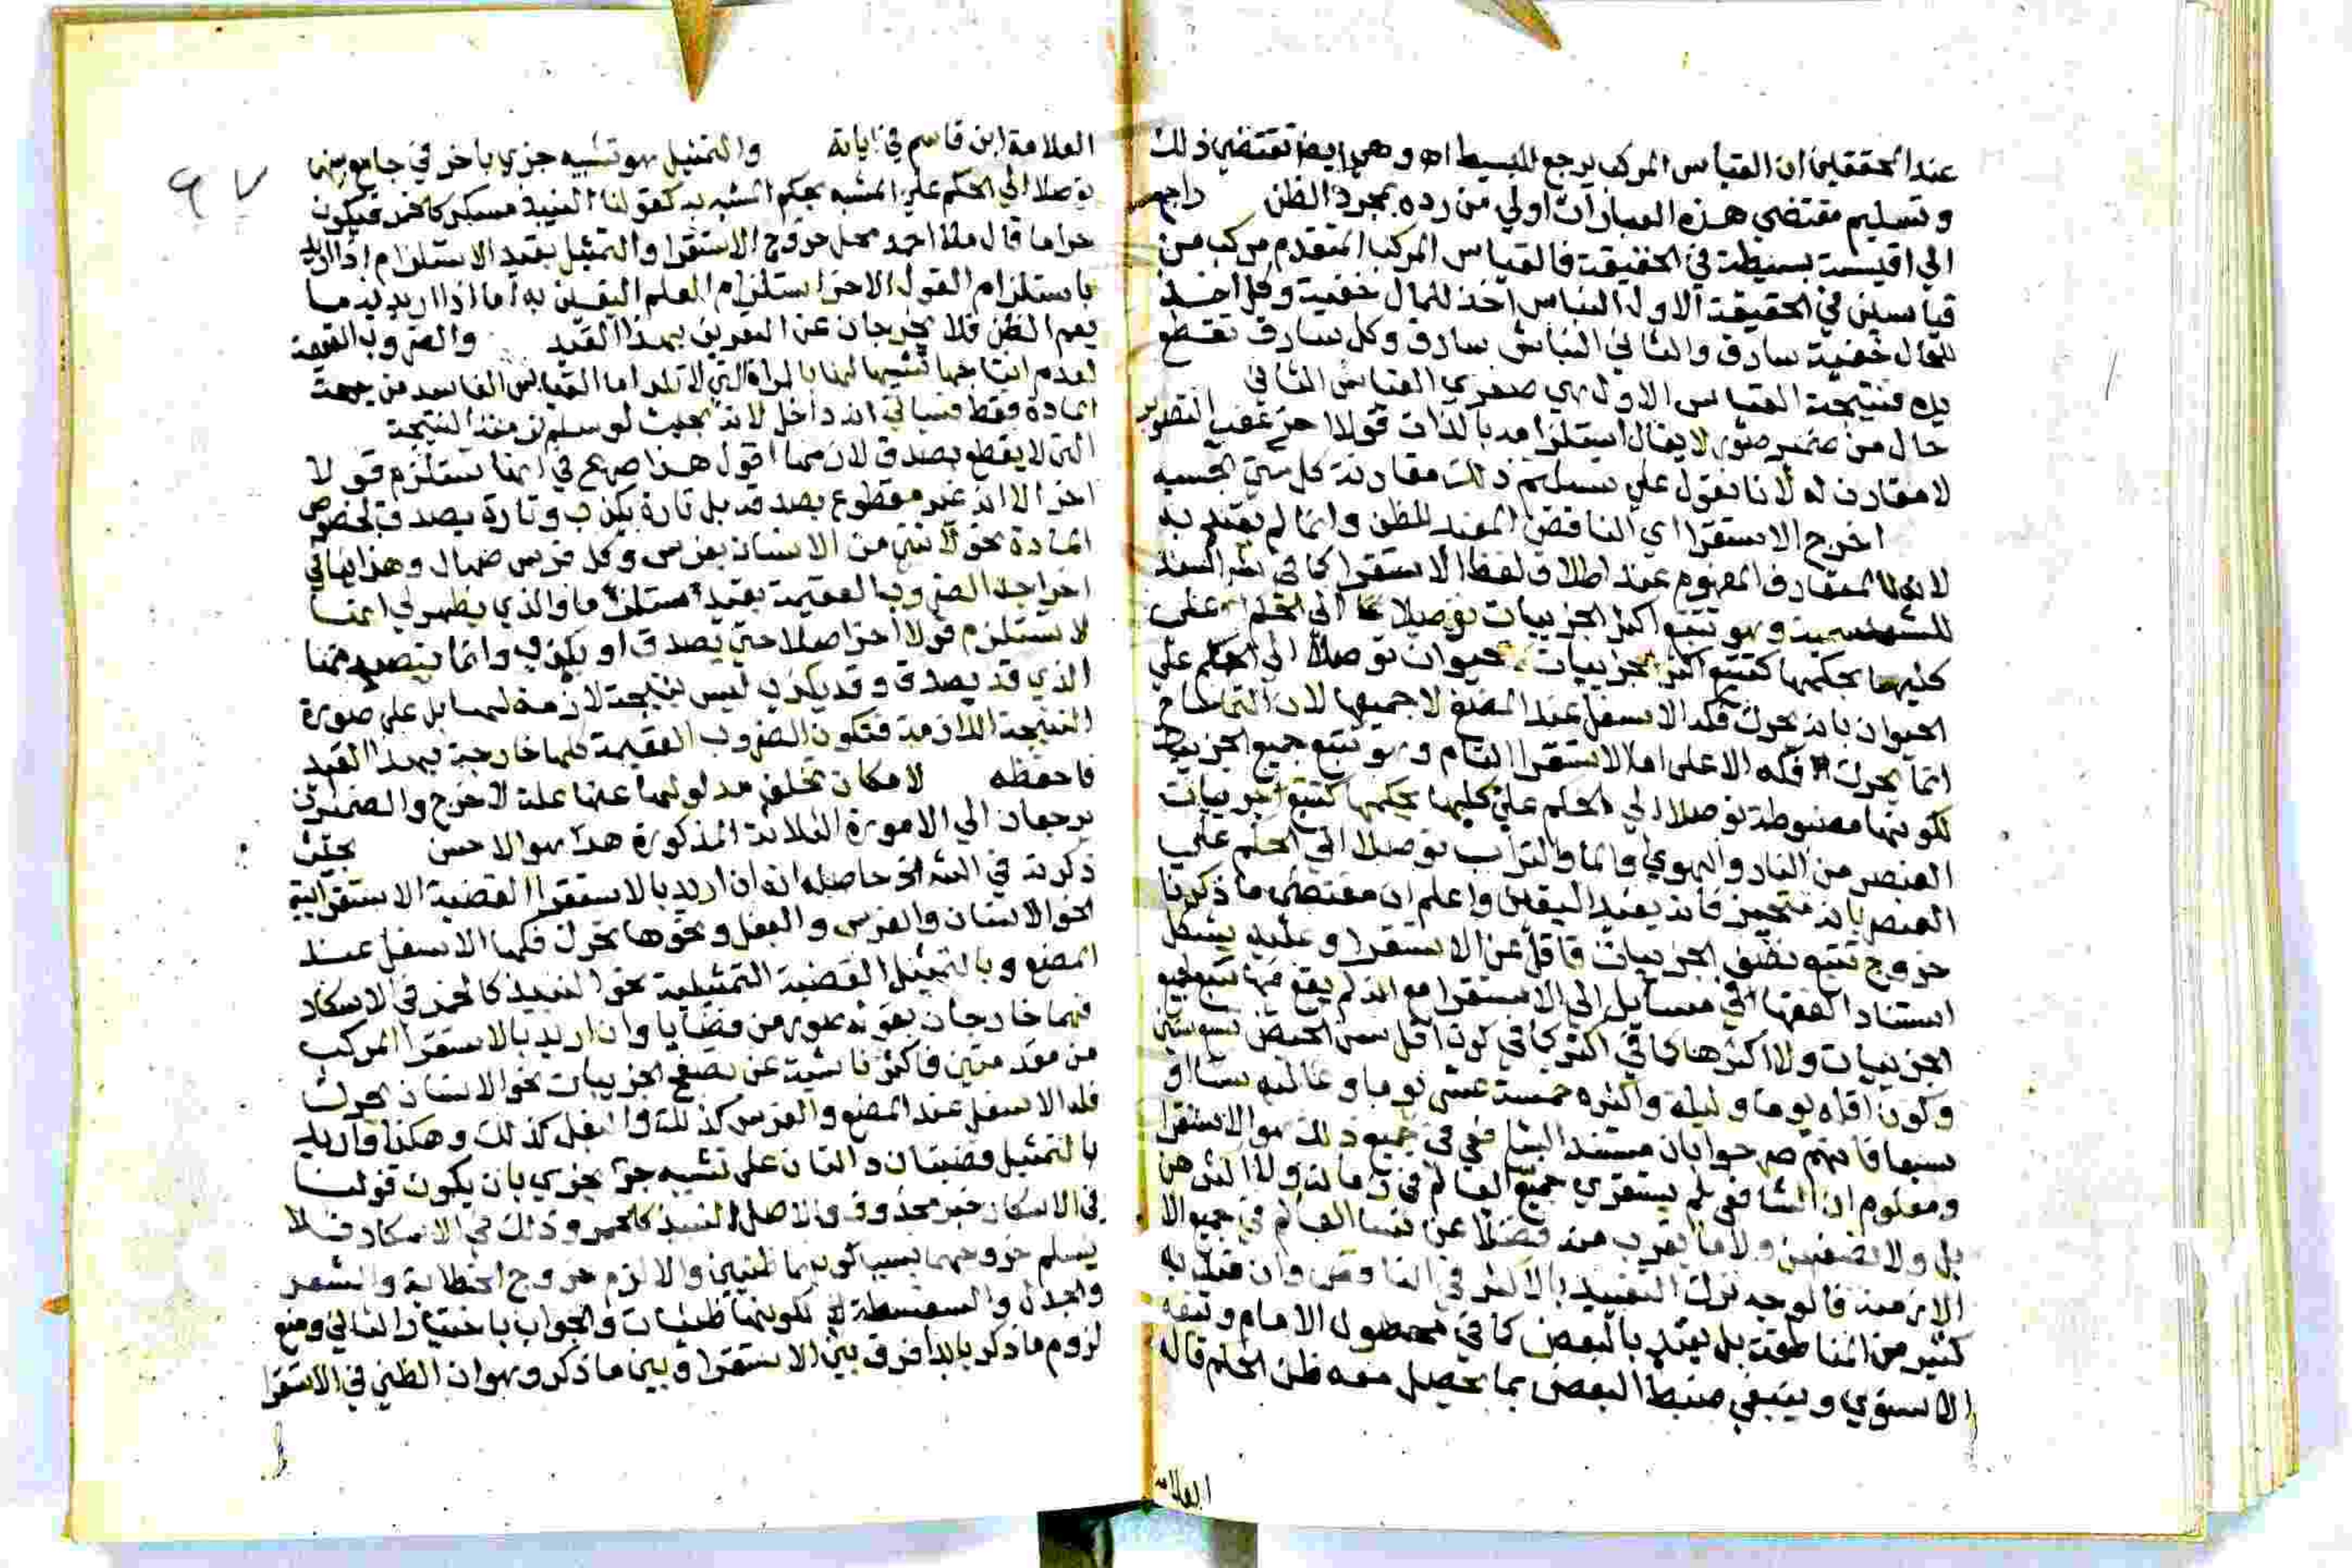 عند المحققين ان القياس المركب يرجع للبسيط اه وهي ايضا تقتضي ذلك
وتسليم مقتضي هذه العبارات اولي من رده بمجرد الظن راجع
الي اقيسة بسيطة في الحقيقة فالقياس المركب المتقدم مركب من
قياسين في الحقيقة الاول النباش اخذ للمال خفية وكل اخذ
للمال خفية سارق والثاني النباش سارق وكل سارق تقطع
يده فنتيجة القياس الاول هي صغري القياس الثاني
حال من ضمير لا يقال استلزامه بالذات قولا اخر
لا مقارن له لانا نقول علي تسليم ذلك مقارنة كل شي بحسبه
اخرج الاستقرا اي الناقص المفيد للظن وانما لم يقيد به
لانه المتعارف المفهوم عند اطلاق لفظ الاستقرا كما في السعد
للشمسية وهو تتبع اكثر الجزييات توصلا الي الحكم علي
كليها بحكمها كتتبع اكثر الجزييات حيوان توصلا الي الحكم علي
الحيوان بانه يحرك فكه الاسفل عند المضغ لا جميعها لان التمساح
انما يحرك فكه الاعلي اما الاستقرا التام وهو تتبع جميع الجزييات
لكونها مضبوطة توصلا الي الحكم علي كليها بحكمها كتتبع جزييات
العنصر من النار والهوي والما والتراب توصلا الي الحكم علي
العنصر بانه متحيز فانه يفيد اليقين واعلم ان مقتضي ما ذكرنا
خروج تتبع نصف الجزييات فاقل عن الاستقرا وعليه يشكل
استناد الفقها في مسايل الي الاستقرا مع انه لم يقع فيها تتبع جميع
الجزييات ولا اكثرها كما في كون اقل سن الحيض تسع سنين
وكون اقله يوما وليلة واكثره خمسة عشر يوما وغالبه ستا او
سبعا فانهم صرحوا بان مستند الشافعي في جميع ذلك هو الاستقرا
ومعلوم ان الشافعي لم يستقري جميع العالم في زمانه ولا اكثرهن
بل ولا نصفهن ولا ما يقرب منه فضلا عن نسا العالم في جميع الا
الازمنة فالوجه ترك التقييد بالاكثر في الناقص وان قيد به
كثير من المناطقة بل يقيد بالبعض كما في محصول الامام وتبعه
الاسنوي وينبغي ضبط البعض بما يحصل معه ظن الحكم قاله
العلامة
العلامة ابن قاسم في اياته والتمثيل هو تشبيه جزي باخر في جامع بينهما
توصلا الي الحكم علي المشبه بحكم المشبه به كقولنا النبيذ مسكر كالخمر فيكون
حراما قال ملا احمد محل خروج الاستقرا والتمثيل بقيد الاستلزام اذا اريد
باستلزام القول الاخر استلزام العلم اليقيني به اما اذا اريد به ما
يعم الظن فلا يخرجان عن التعريف بهذا القيد والضروب العقيمة
لعدم انتاجها تشبيها لها بالمراة التي لا تلد اما القياس الفاسد من جهة
المادة فقط فسياتي انه داخل لانه بحيث لو سلم لزمته النتيجة
التي لا يقطع بصدق لازمها اقول هذا صريح في انها تستلزم قولا
اخر الا انه غير مقطوع بصدقه بل تارة يكذب وتارة يصدق لخصوص
المادة نحو لا شي من الانسان بفرس وكل فرس صهال وهذا ينافي
اخراجه الضروب العقيمة بقيد مستلزما والذي يظهر لي انها
لا تستلزم قولا اخر اصلا حتي يصدق او يكذب وانما
الذي قد يصدق وقد يكذب ليس نتيجة لازمة لها بل علي صورة
النتيجة اللازمة فتكون الضروب العقيمة كلها خارجة بهذا القيد
فاحفظه لامكان تخلف مدلولهما عنهما علة لاخرج والضميران
يرجعان الي الامورة الثلاثة المذكورة هذا هو الاحسن بحث
ذكرته في الشر حاصله انه ان اريد بالاستقرا القضية الاستقرائية
نحو الانسان والفرس والبغل ونحوها تحرك فكها الاسفل عند
المضغ وبالتمثيل القضية التمثيلية نحو النبيذ كالخمر في الاسكار
فهما خارجان بقوله من قضايا وان اريد بالاستقرا المركب
من مقدمتين فاكثر ناشية عن تصفح الجزييات نحو الانسان يحرك
فكه الاسفل عند المضغ والفرس كذلك والبغل كذلك وهكذا واريد
بالتمثيل قضيتان دالتان علي تشبيه جزي بجزي بان يكون قولنا
في الاسكار خبر محذوف والاصل النبيذ كالخمر وذلك في الاسكار فلا
يسلم خروجهما بسبب كونهما ظنيين والا لزم خروج الخطابة والشعر
والجدل والسفسطة لكونها ظنيات والجواب باختيار الثاني ومنع
لزوم ما ذكر بالفرق بين الاستقرا وبين ما ذكر وهو ان الظني في الاستقرا